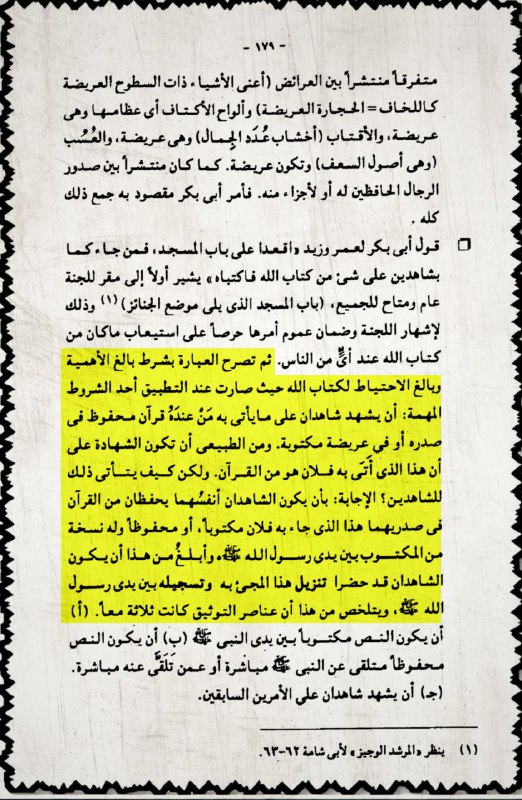 - ١٧٩ -
متفرقاً منتشراً بين العرائض (أعنى الأشياء ذات السطوح العريضة
كاللخاف = الحجارة العريضة) وألواح الأكتاف أى عظامها وهى
عريضة، والأقتاب (أخشاب عُدَد الجِمال) وهى عريضة، والعُسُب
(وهى أصول السعف) وتكون عريضة. كما كان منتشراً بين صدور
الرجال الحافظين له أو لأجزاء منه. فأمر أبى بكر مقصود به جمع ذلك
كله .
❐ قول أبى بكر لعمر وزيد «اقعدا على باب المسجد، فمن جاءكما
بشاهدين على شئ من كتاب الله فاكتباه» يشير أولاً إلى مقر للجنة
عام ومتاح للجميع، (باب المسجد الذى يلى موضع الجنائز) (١) وذلك
لإشهار اللجنة وضمان عموم أمرها حرصاً على استيعاب ماكان من
كتاب الله عند أىٍّ من الناس. ثم تصرح العبارة بشرط بالغ الأهمية
وبالغ الاحتياط لكتاب الله حيث صارت عند التطبيق أحد الشروط
المهمة: أن يشهد شاهدان على مايأتى به مَنْ عندَهُ قرآن محفوظ فى
صدره أو في عريضة مكتوبة. ومن الطبيعى أن تكون الشهادة على
أن هذا الذى أَتَى به فلان هو من القرآن. ولكن كيف يتأتى ذلك
للشاهدين؟ الإجابة: بأن يكون الشاهدان أنفسُهما يحفظان من القرآن
فى صدريهما هذا الذى جاء به فلان مكتوباً، أو محفوظاً وله نسخة
من المكتوب بين يدى رسول الله ﷺ، وأبلغُ من هذا أن يكون
الشاهدان قد حضرا تنزيل هذا المجئ به وتسجيله بين يدى رسول
الله ﷺ، ويتلخص من هذا أن عناصر التوثيق كانت ثلاثة معاً. (أ)
أن يكون النص مكتوباً بين يدى النبى ﷺ (ب) أن يكون النص
محفوظاً متلقى عن النبى ﷺ مباشرة أو عمن تَلَقَّى عنه مباشرة.
(جـ) أن يشهد شاهدان على الأمرين السابقين.
(١) ينظر «المرشد الوجيز» لأبى شامة ٦٢-٦٣.